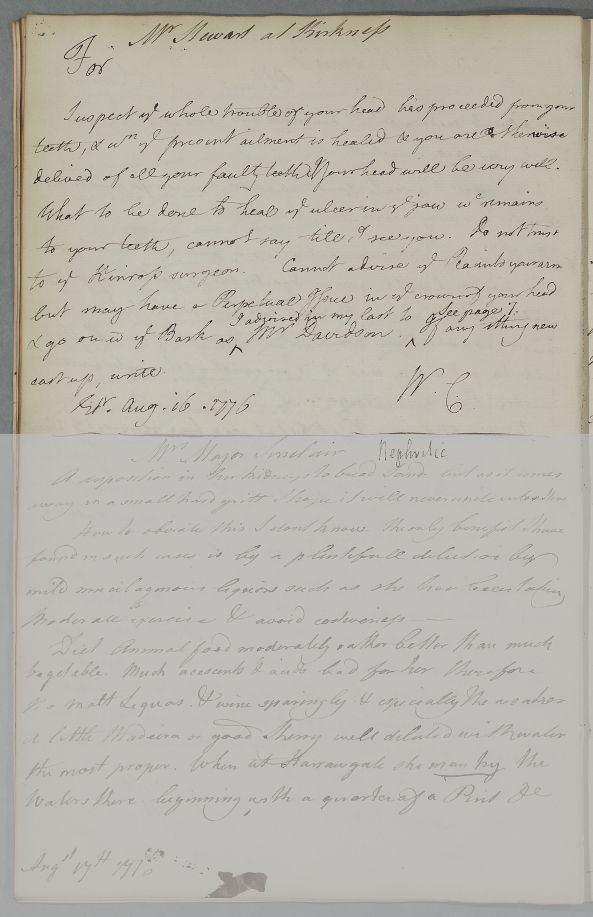 Mr Stewart at Kirkness
For
I suspect ye whole trouble of your head has proceeded from your
teeth, & wn ye present ailment is healed & you are otherwise
delived of all your faulty teeth yn your head will be very well.
What to be done to heal ye ulcer in ye jaw wc remains
to your teeth, cannot say till I see you. Do not trust
to ye Kinross surgeon. Cannot advise ye your arm
but may have a Perpetual Issue in ye crown of your head
& go on w ye Bark as I advised in my last to Mr Davidson. See page 7. If any thing new
cast up, write.
W. C.
Edr. Aug. 16. 1776
Mrs Major Sinclair Nephritic
A disposition in her kidneys to breed Sand but as it comes
away in a small hard gritt I hope it will never unite into stone
How to obviate this I dont know. The only benefit I have
found in such cases is by a plentifull dilution by
mild mucilaginous liquors such as she has been taking
Moderate Exercise & avoid costiveness
Diet Animal food moderately rather better than much
Vegetable. Much acescents & acids bad for her therefore
No malt Liquors. & wine sparingly & especially the weaker
A little Madeira or good Sherry well diluted with water
the most proper. When at Harrowgate she may try the
Waters there beginning with a quarter of a Pint &c
Augst 17th 1776